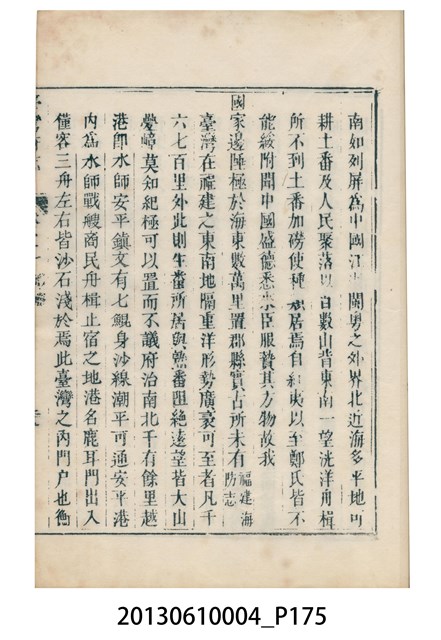 南如列屏為中國江浙閩粵之外界北近海多平地可
耕土番及人民聚落以百數山背東南一望洸洋舟楫
所不到土番加磅使種居焉自紅夷以至鄭氏皆不
能綏附聞中國盛德悉來臣服贄其方物故我
國家邊陲極於海東數萬里置郡縣實古所未有福建海防志
臺灣在福建之東南地隔重洋形勢廣袤可至者凡千
六七百里外此則生番所居與熟番阻絶遠望皆大山
疊嶂莫知紀極可以置而不議府治南北千有餘里越
港即水師安平鎮文有七鯤身沙線潮平可通安平港
內為水師戰艘商民舟楫止宿之地港名鹿耳門出入
僅容三舟左右皆沙石淺於焉此臺灣之內門户也衡
20130610004_P175